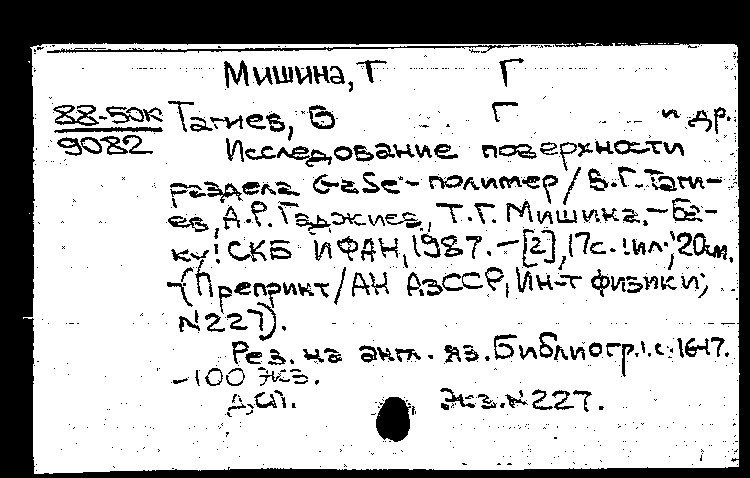 Мишина, Т Г
88-50К Тагиев, Б Г и др.
9082 Исследование поверхности
раздела GaSe-полимер/Б.Г.Таги-
ев, А.Р.Гаджиев, Т.Г.Мишина.-Ба-
ку: СКБ ИФАН, 1987.-[2], 17с.:ил.; 20см.
-(Препринт/АН АзССР, Ин-т физики;
N227).
Рез. на англ. яз. Библиогр.: с.16-17.
-100 экз.
ДСП. Экз.N227.